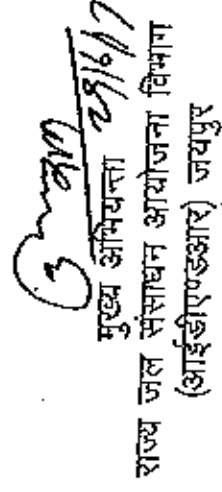 29/6/17
मुख्य अभियन्ता
राज्य जल संसाधन आयोजना विभाग
(आईडीएण्डआर) जयपुर